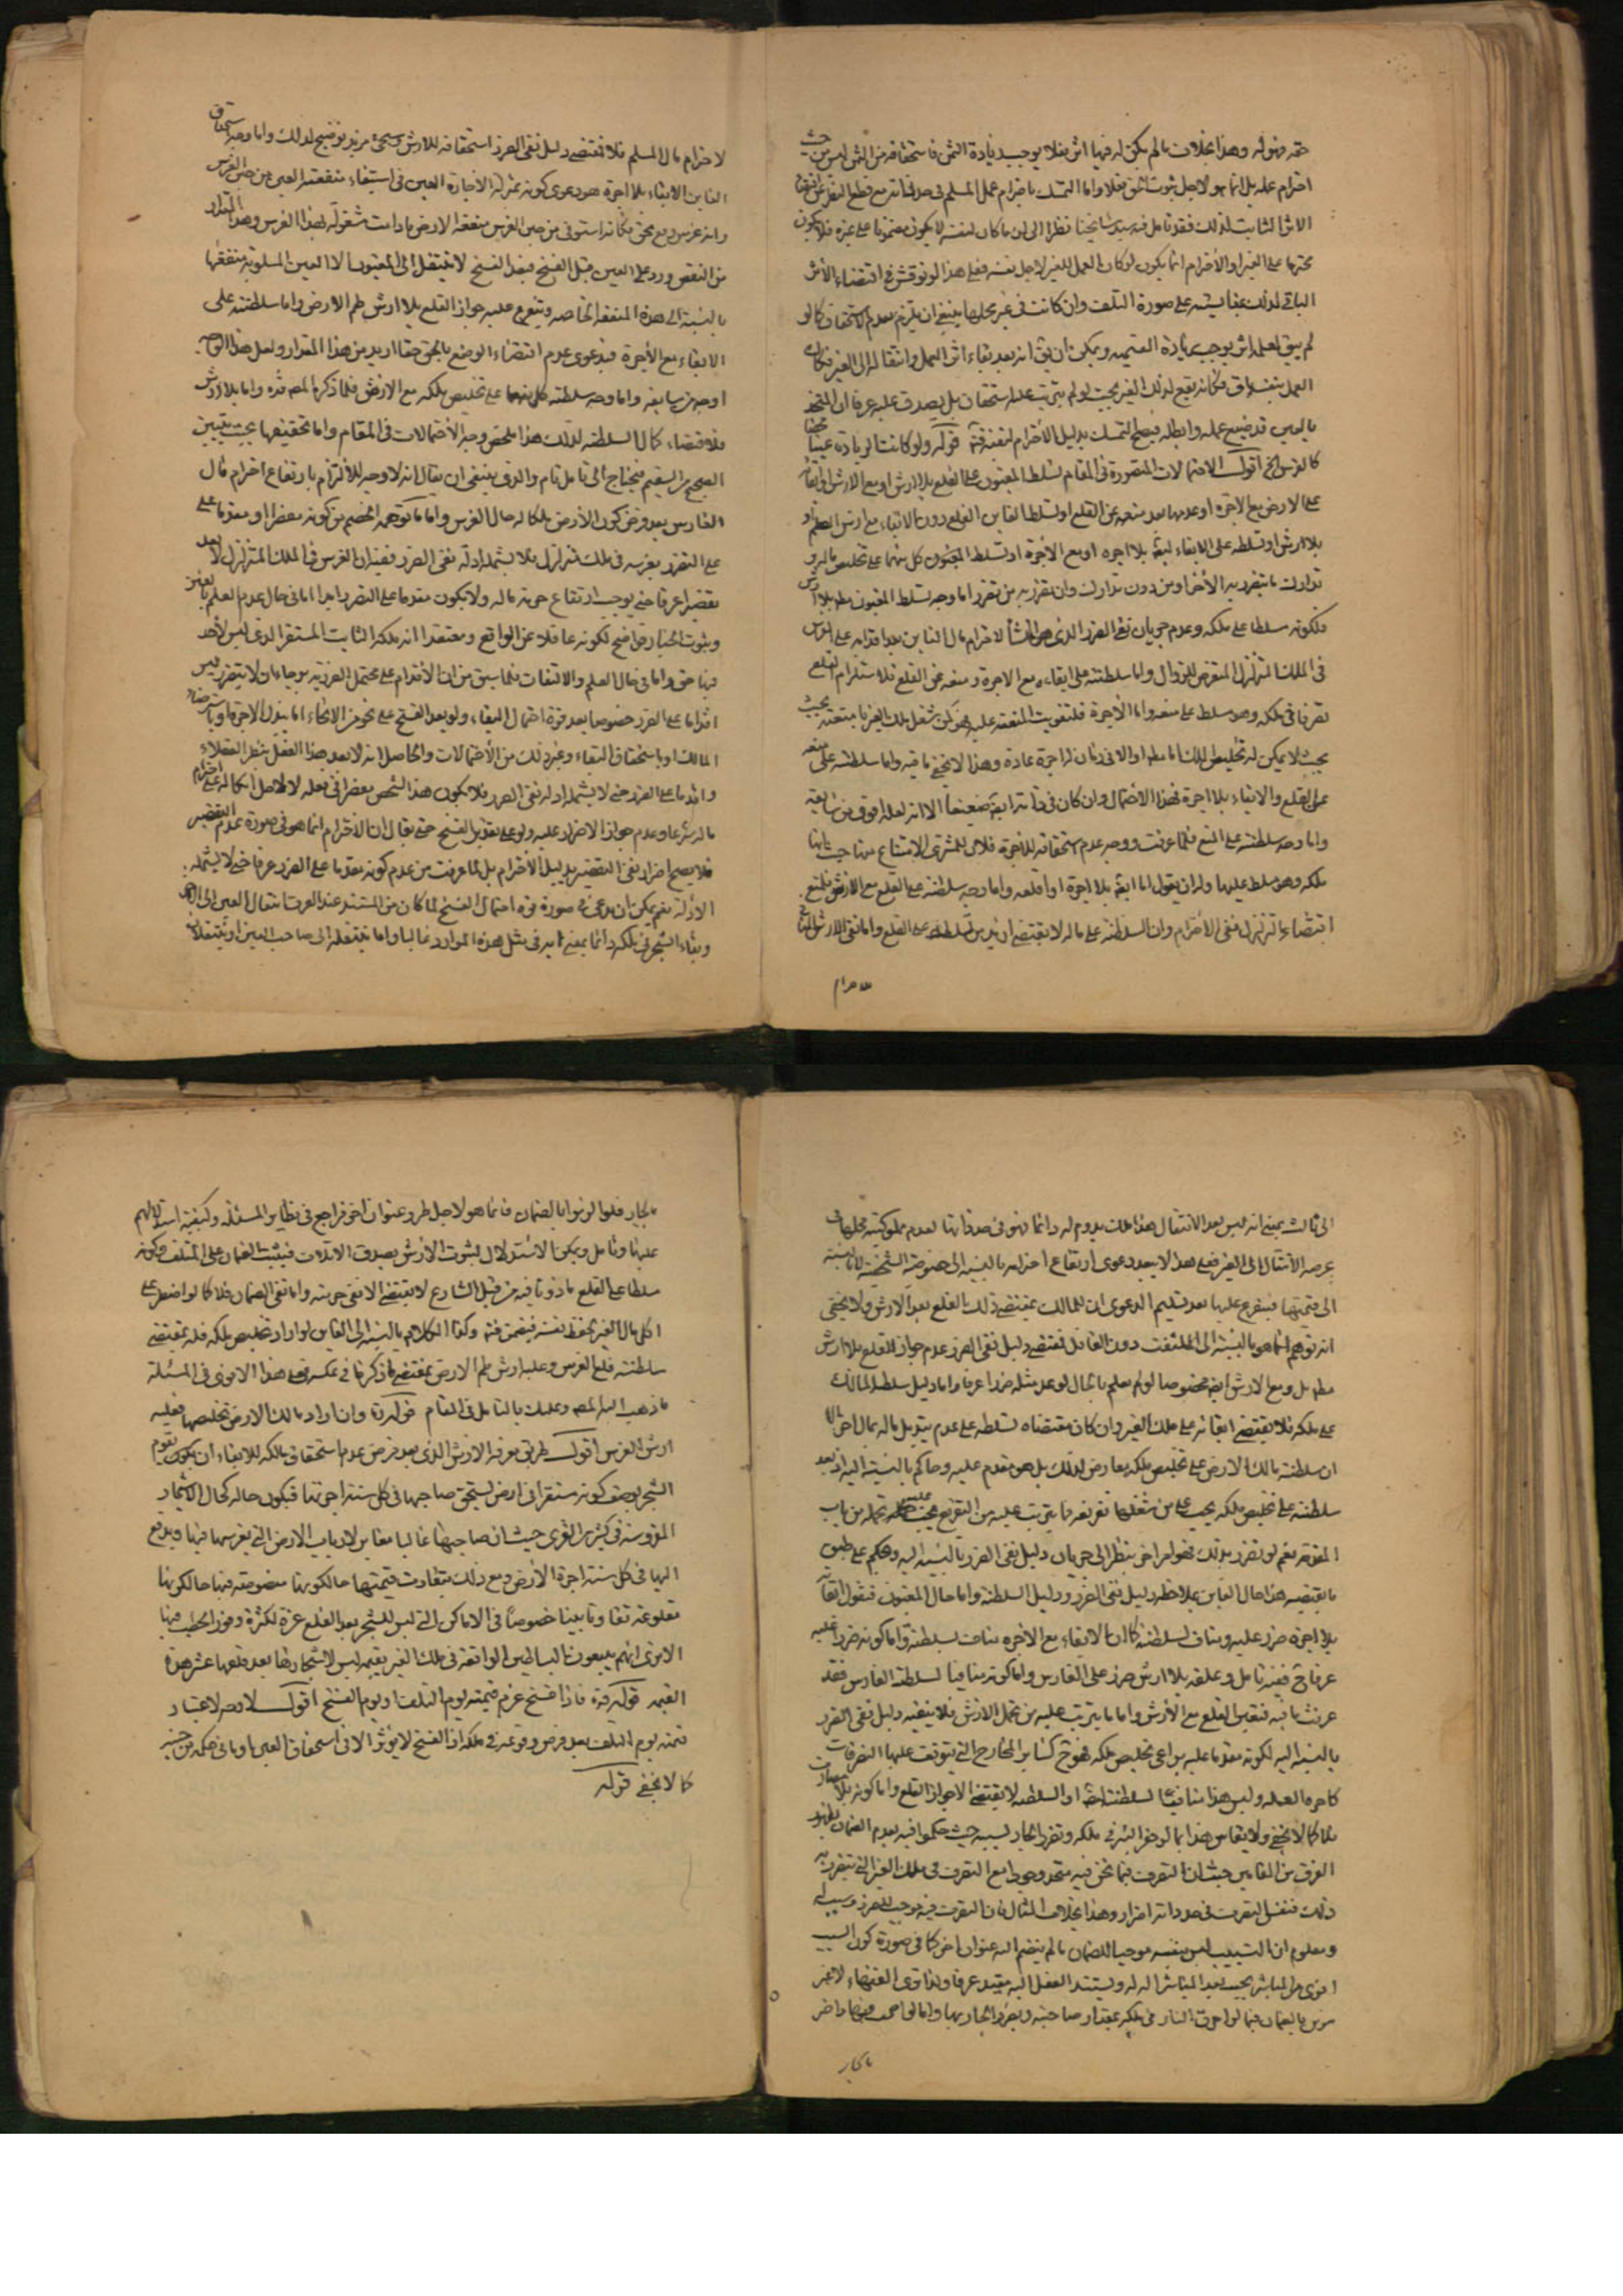 حقه فهو له وهذا بخلاف ما لم يكن له فيها اثر فلا يوجب زيادة الثمن فاستحقاقه من الثمن ليس من حيث
احترام عمله بل انما هو لاجل ثبوت
الاثر الثابت لذلك فقد تامل فيه سيد مشايخنا نظرا الى ان ما كان لنفسه لا يكون مضمونا على غيره فلا يكون
محترما على الغير والاحترام انما يكون لو كان العمل للغير لا لاجل نفسه فعلى هذا لو نوقش في اقتضاء الاثر
الباقي لذلك بمقايسته على صورة التلف وان كانت في غير محلها ينبغي ان يلتزم بعدم الاستحقاق كما لو
لم يبق لعمله اثر يوجب زيادة القيمة ويمكن ان يق انه بعد بقاء اثر العمل وانتقاله الى الغير فكان
العمل بنفسه باق فكانه يقع لذلك الغير بحيث لو لم يترتب عليه استحقاق بل يصدق عليه عرفا ان
قد ضيع عمله وابطله فيصح التمسك بدليل الاحترام قوله ولو كانت الزيادة عينا محضا
كالغرس الخ اقول الاحتمالات المتصورة في المقام تسلط المغبون على القلع بلا ارش او مع الارش او ابقائه
على الارض مع الاجرة او عدمها بعد منعه عن القلع او تسلط الغابن القلع دون الابقاء مع ارش الطم او
بلا ارش او تسلطه على الابقاء ايضا بلا اجرة او مع الاجرة او تسلط المغبون كل منهما على تخليص ماله و
تدارك ما يتضرر به الاخر او من دون تدارك وان تضرر به من تضرر اما وجه تسلط المغبون مط بلا ارش
فلكونه مسلطا على ملكه وعدم جريان نفي الضرر الذي هو المنشأ لاحترام مال الغابن بعد اقدامه على الغرس
في الملك المتزلزل المتعرض للزوال واما سلطنته على ابقائه مع الاجرة ومنعه عن القلع فلاستلزام القلع
تصرفا في ملكه وهو مسلط على منعه واما الاجرة فلتفويت المنفعة عليه
بحيث لا يمكن له تخليص الملك اما مط او الا في زمان له اجرة عادة وهذا لا يخفى ما فيه واما سلطنته على منعه
عن القلع والابقاء بلا اجرة فهذا الاحتمال وان كان في ايضا ضعيفا الا انه لعله اقوى من سابقه
واما وجه سلطنته على المنع فلما عرفت ووجه عدم استحقاقه للاجرة فلان للمشتري الامتناع
ملكه وهو مسلط عليها وله ان يقول اما ابقه بلا اجرة او اقلعه واما وجه سلطنته على القلع مع الارش فلمنع
اقتضاء ما تزلزل لنفي الاحترام وان السلطنة على ماله لا يقتضي ازيد من تسلطه على القلع واما نفي الارش
لاحترام
لاحترام مال المسلم فلا يقتضيه دليل نفي الضرر استحقاقه للارش وسيجئ مزيد توضيح لذلك واما وجه استحقاق
الغابن الابقاء بلا اجرة هو دعوى كونه بمنزلة الاجارة العين في استيفاء منفعته
وانه غرس وقع بحق فكانه استوفى من حين الغرس منفعة الارض ما دامت مشغولة بهذا الغرس وهذا المقدار
من النقص ورد على العين قبل الفسخ فبعد الفسخ لا ينتقل الى المغبون الا العين المسلوبة منفعتها
بالنسبة الى هذه المنفعة الخاصة ويتفرع عليه جواز القلع بلا ارش طم الارض واما سلطنته على
الابقاء مع الاجرة فبدعوى عدم اقتضاء الوضع بالحق حقا ازيد من هذا المقدار ولعل هذا
اوجه من سابقه واما وجه سلطنته كل منهما على تخليص ملكه مع الارش فلما ذكره المص قده واما بلا ارش
فلاقتضاء كمال السلطنة لذلك هذا ملخص وجه الاحتمالات في المقام واما تحقيقها بحيث يتبين
الصحيح من السقيم فيحتاج الى تامل تام والذي ينبغي ان يقال انه لا وجه للالتزام بارتفاع احترام مال
الغارس بعد فرض كون الارض ملكا له حال الغرس واما ما توهمه الخصم من كونه مضرا او مقدما على
على التضرر بغرسه في ملك متزلزل فلا يشمله ادلة نفي الضرر ففيه ان الغرس في الملك المتزلزل لا يعد
تقصيرا عرفا حتى يوجب ارتفاع حرمة ماله ولا يكون مقدما على التضرر ابدا اما في حال عدم العلم بالغبن
وثبوت الخيار فواضح لكونه غافلا عن الواقع ومعتقدا انه ملكه الثابت المستقر الذي ليس لاحد
فيها حق واما في حال العلم والالتفات فلما سبق من ان الاقدام على محتمل الضررية برجاء ان لا يتضرر ليس
اقداما على الضرر خصوصا بعد قوة احتمال البقاء ولو بعد الفسخ على نحو من الانحاء اما ببذل الاجرة او باسترضاء
المالك او باستحقاق البقاء وغير ذلك من الاحتمالات والحاصل انه لا يعد هذا الفعل بنظر العقلاء
واقداما على الضرر حتى لا يشمله ادلة نفي الضرر فلا يكون هذا الشخص مقصرا في فعله
ماله شرعا وعدم جواز الاضرار عليه ولو على تقدير الفسخ حتى يقال ان الاحترام انما هو في صورة عدم التقصير
فلا يصح اخراز نفي التقصير بدليل الاحترام بل لما عرفت من عدم كونه مقدما على الضرر عرفا حتى لا يشمله
الادلة نعم يمكن ان يدعى في صورة قوة احتمال الفسخ لما كان من المستند عند العرف انتقال العين الى
وبقاء الشجر في ملكه دائما بمعنى في مثل هذه الموارد غالبا واما ينتقله الى صاحب العين او ينتقلان
الى ثالث بمعنى انه ليس بعد الانتقال هذا ملك يدوم له دائما فهو في حد ذاتها لعدم مملوكية محلها في
عرضة الانتقال الى الغير فعلى هذا لا يبعد دعوى ارتفاع احترامه بالنسبة الى خصوصيته الشخصية لا بالنسبة
الى قيمتها فيتفرع عليها بعد تسليم الدعوى ان للمالك بمقتضى ذلك القلع بعد الارش ولا يخفى
انه توهم انما هو بالنسبة الى الملتفت دون الغافل فمقتضى دليل نفي الضرر عدم جواز القلع بلا ارش
مط بل ومع الارش ايضا خصوصا لو لم يعلم بالحال لو عد مثله ضررا عرفا واما دليل سلطنة المالك
على ملكه فلا يقتضي ابقائه على ملك الغير وان كان مقتضاه تسلطه على عدم تبديل ماله بمال اخر الا
ان سلطنة مالك الارض على تخليص ملكه معارض لذلك بل هو مقدم عليه وحاكم بالنسبة اليه اذ بعد
سلطنته على تخليص ملكه يجب على من شغلها تفريغه وما يترتب عليه من التفريغ يجب عليه تحمله من باب
المقدمة نعم لو تضرر بذلك فهو امر اخر ينظر الى جريان دليل نفي الضرر بالنسبة اليه وحكم على طبق
ما يقتضيه هذا حال الغابن بملاحظة دليل نفي الضرر ودليل السلطنة واما حال المغبون فنقول ابقائه
بلا اجرة ضرر عليه ومناف لسلطنته كما ان الابقاء مع الاجرة مناف لسلطنته واما كونه ضررا عليه
عرفا ففيه تامل وعلقه بلا ارش ضرر على الغارس واما كونه منافيا لسلطنة الغارس فقد
عرفت ما فيه فتعين القلع مع الارش واما ما يترتب عليه من تحمل الارش فلا ينفيه دليل نفي الضرر
بالنسبة اليه لكونه مقدما عليه بداعي تخليص ملكه فهو كسائر المخارج التي يتوقف عليها التصرفات
كاجرة العمله وليس هذا منافيا لسلطنته اذ السلطنة لا يقتضي الا جواز القلع واما كونه بلا
فلا كما لا يخفى ولا يقاس هذا بما لو حفر البئر في ملكه وتضرر الجار بسببه حيث حكموا فيه بعدم الضمان لظهور
الفرق بين المقامين حيث ان التصرف فيما نحن فيه متحد وجودا مع التصرف في ملك الغير الذي يتضرر به
ذلك فنفس التصرف في حد ذاته اضرار وهذا بخلاف المثال فان التصرف فيه موجب للضرر وسبب له
ومعلوم ان التسبيب ليس بنفسه موجبا للضمان ما لم ينضم اليه عنوان اخر كما في صورة كون السبب
اقوى من المباشر بحيث يعد المباشر الة له ويستند الفعل اليه عرفا ولذا ترى الفقهاء لا
بالضمان فيما لو اجج النار في ملكه بمقدار حاجته وتضرر الجار بها واما لو اجج
بالجار
بالجار فلو التزموا بالضمان فانما هو لاجل طرو عنوان اخر فراجع في نظاير المسئلة وكيفية استدلالهم
عليها وتامل ويمكن الاستدلال لثبوت الارش بصدق الاتلاف فيثبت الضمان على المتلف وكونه
مسلطا على القلع ماذونا فيه من قبل الشارع لا يقتضي الا نفي حرمته واما نفي الضمان فلا كما لو اضطر على
اكل مال الغير لحفظ نفسه فيضمن قيمته وكذا الكلام بالنسبة الى الغابن لو اراد تخليص ملكه فله بمقتضى
سلطنته قلع الغرس وعليه ارش طم الارض بمقتضى ما ذكرنا في عكسه فعلى هذا الاقوى في المسئلة
ما ذهب اليه المص وعليك بالتامل في المقام قوله وان اراد مالك الارض تخليصها فعليه
ارش الغرس اقول طريق معرفة الارش الذي بعد فرض عدم استحقاق مالكه للابقاء ان يقوم
الشجر بوصف كونه مستقرا في ارض يستحق صاحبها في كل سنة اجرتها فيكون حاله كحال الاشجار
المغروسة في كثير من القرى حيث ان صاحبها غالبا مغاير لارباب الارض التي يغرسها فيها ويدفع
اليها في كل سنة اجرة الارض ومع ذلك يتفاوت قيمتها حالكونها منصوبة فيها حالكونها
مقلوعة تفاوتا بينا خصوصا في الاماكن التي ليس للشجر بعد القلع عزة لكثرة وفور الحطب فيها
الا ترى انهم يبيعون البساتين الواقعة في ملك الغير بقيمة ليس لاشجارها بعد قلعها عشر هذه
القيمة قوله فاذا فسخ غرم قيمته يوم التلف او يوم الفسخ اقول لا وجه لاعتبار
قيمته يوم التلف بعد فرض وقوعه في ملكه اذ الفسخ لا يؤثر الا في استحقاق العين او ما في حكمه من حينه
كما لا يخفى قوله